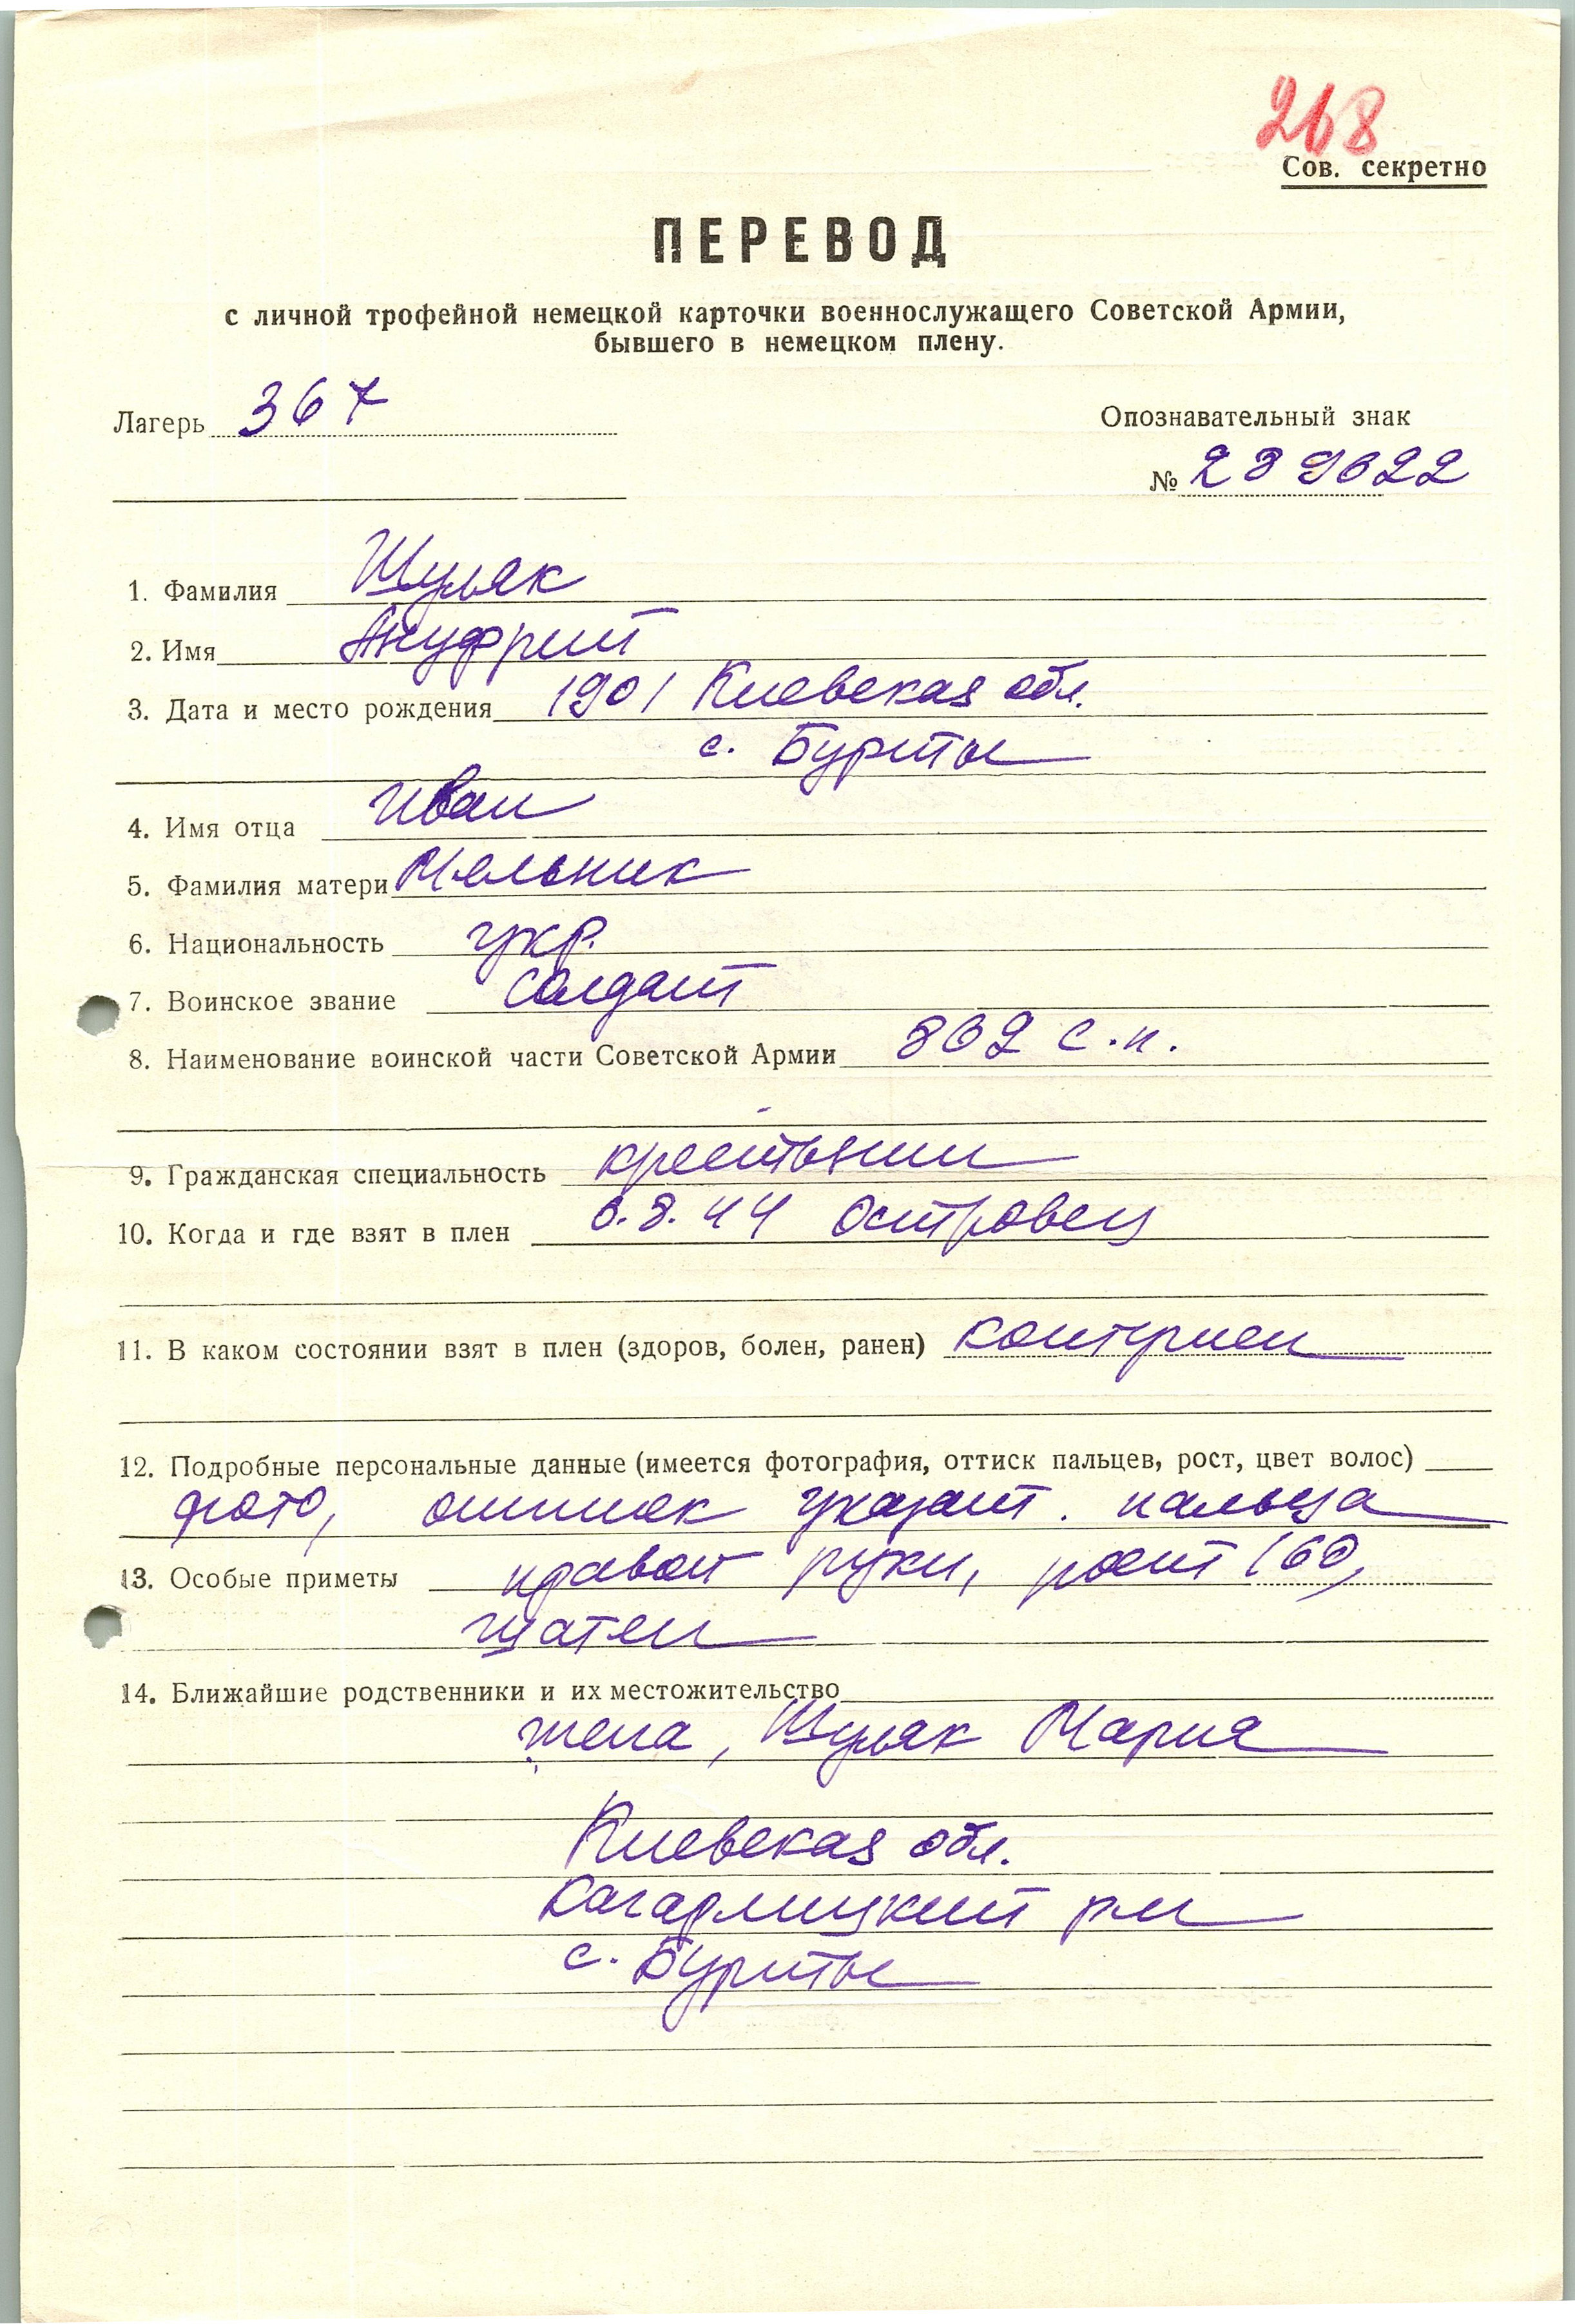 268
Сов. секретно
ПЕРЕВОД
с личной трофейной немецкой карточки военнослужащего Советской Армии,
бывшего в немецком плену.
Лагерь 367
Опознавательный знак
№ 239622
1. Фамилия Шуляк
2. Имя Ануфрий
3. Дата и место рождения 1901 Киевская обл.
с. Бурты
4. Имя отца Иван
5. Фамилия матери Мельник
6. Национальность укр.
7. Воинское звание солдат
8. Наименование воинской части Советской Армии 869 с.п.
9. Гражданская специальность крестьянин
10. Когда и где взят в плен 6.8.44 Островец
11. В каком состоянии взят в плен (здоров, болен, ранен) контужен
12. Подробные персональные данные (имеется фотография, оттиск пальцев, рост, цвет волос)
фото, оттиск указат. пальца
13. Особые приметы правой руки, рост 160,
шатен
14. Ближайшие родственники и их местожительство
жена, Шуляк Мария
Киевская обл.
Кагарлицкий рн
с. Бурты